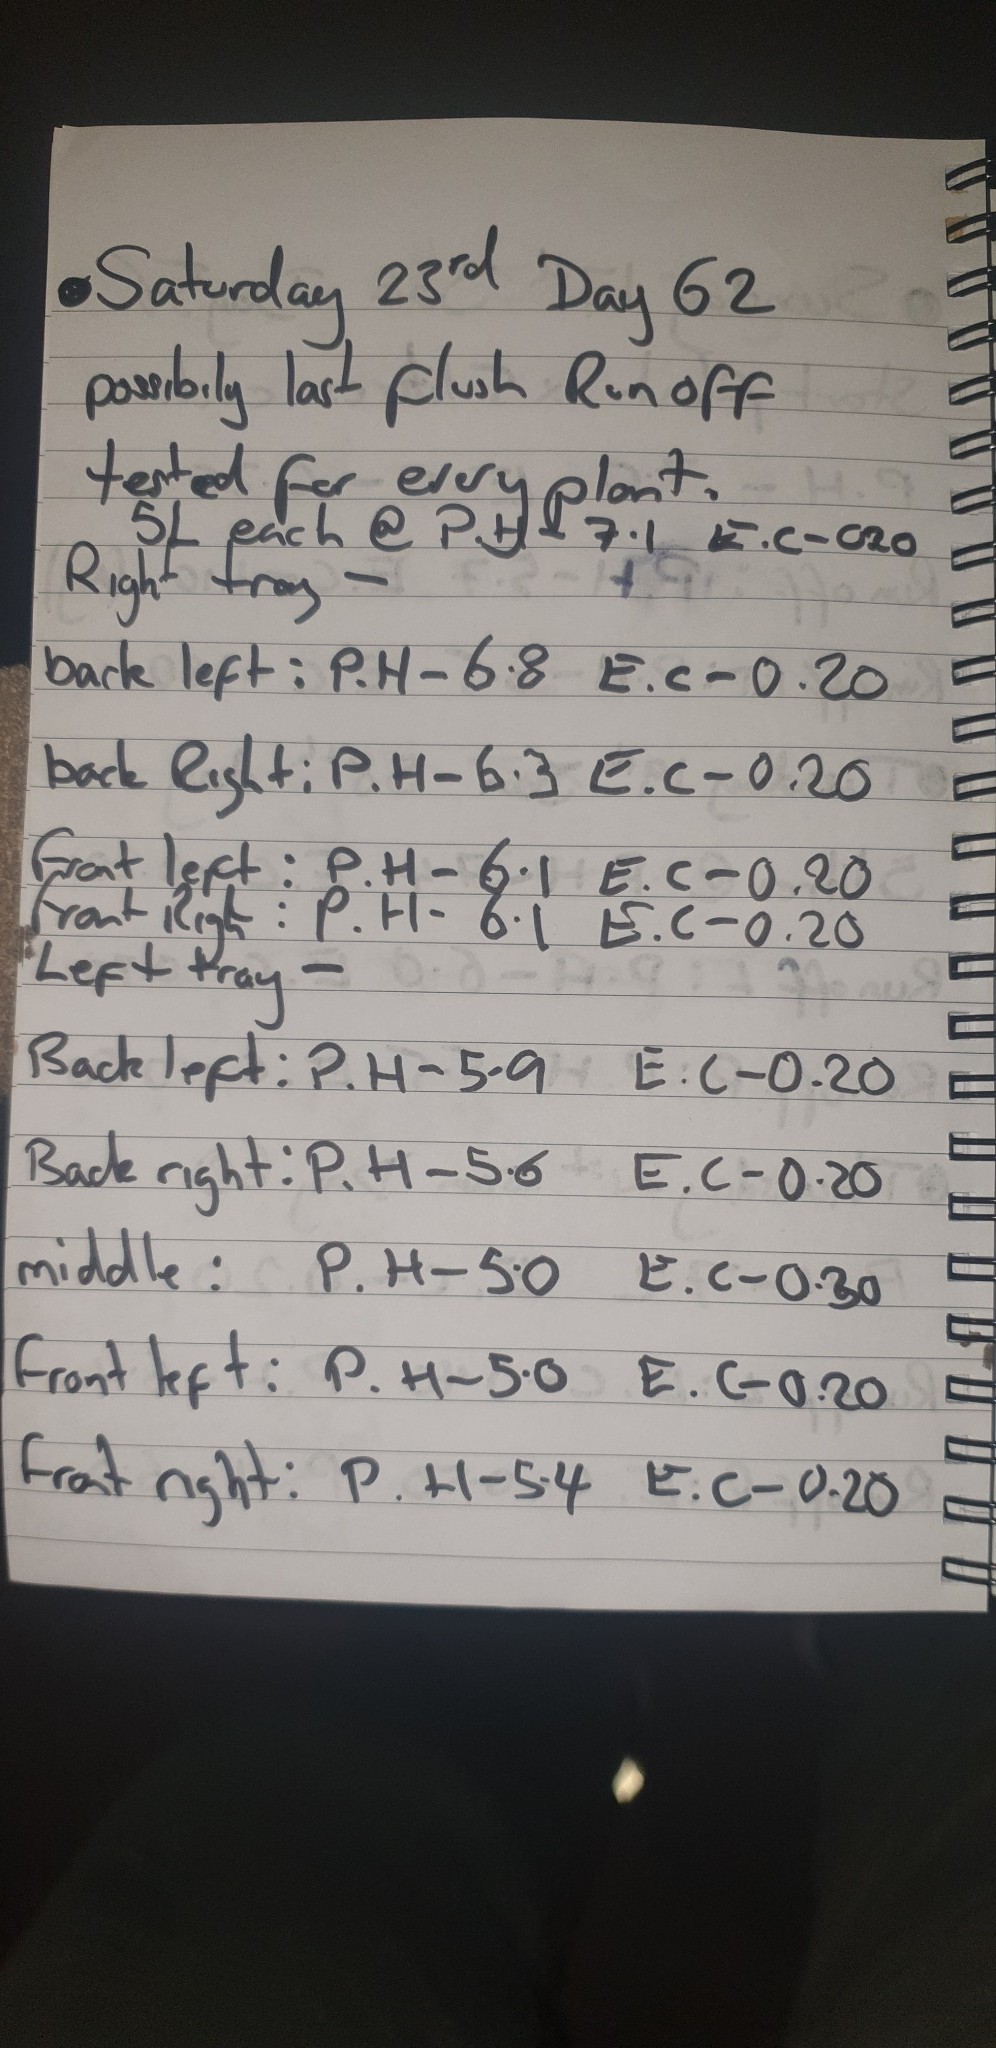 • Saturday 23rd Day 62
possibily last flush Run off
tested for every plant.
5L each @ P.H - 7.1 E.C-020
Right tray -
back left: P.H-6.8 E.C-0.20
back Right: P.H-6.3 E.C-0.20
Front left: P.H-6.1 E.C-0.20
Front Righ: P.H-6.1 E.C-0.20
Left tray -
Back left: P.H-5.9 E.C-0.20
Back right: P.H-5.6 E.C-0.20
middle: P.H-5.0 E.C-0.30
Front left: P.H-5.0 E.C-0.20
Front right: P.H-5.4 E.C-0.20